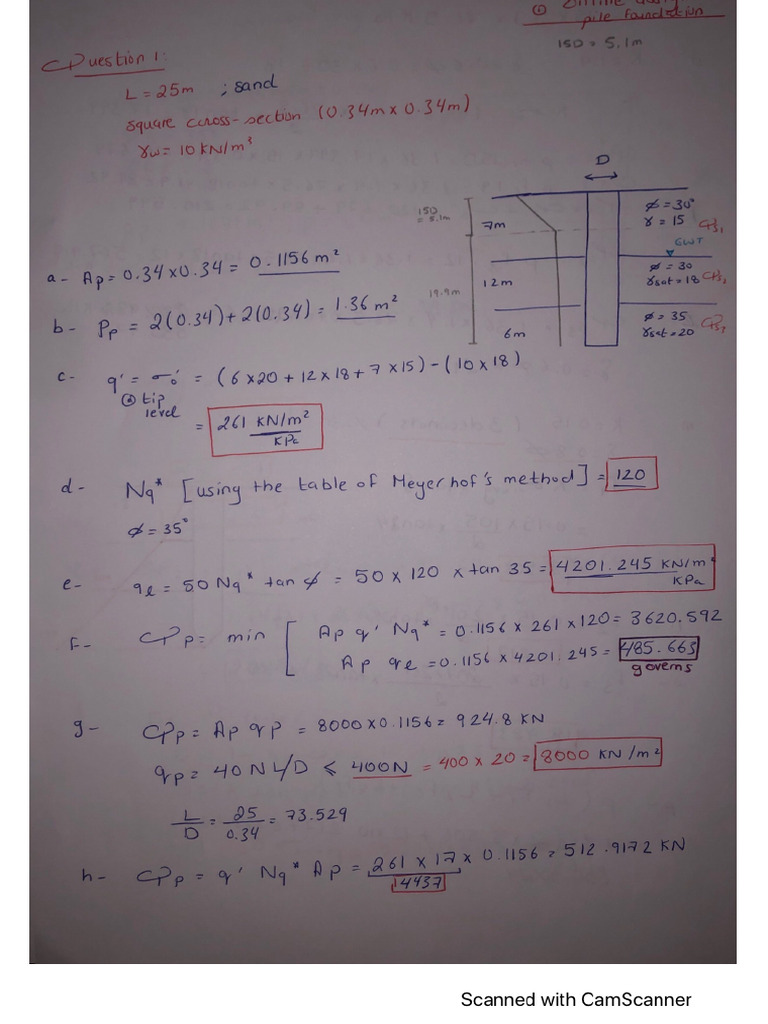 pile foundation
15D = 5.1m
Question 1:
L = 25m ; sand
square cross-section (0.34m x 0.34m)
γw = 10 kN/m³
D
15D
= 5.1m
7m
ϕ = 30°
γ = 15
Qs₁
GWT
19.9m
12m
ϕ = 30
γsat = 18
Qs₂
6m
ϕ = 35
γsat = 20
a- Ap = 0.34 x 0.34 = 0.1156 m²
b- Pp = 2(0.34) + 2(0.34) = 1.36 m²
c- q' = σo' = (6 x 20 + 12 x 18 + 7 x 15) - (10 x 18)
@ tip
level
= 261 KN/m²
KPa
d- Nq* [using the table of Meyerhof's method] = 120
ϕ = 35°
e- qe = 50 Nq* tan ϕ = 50 x 120 x tan 35 = 4201.245 KN/m
KPa
f- Qp = min [ Ap q' Nq* = 0.1156 x 261 x 120 = 3620.592
Ap qe = 0.1156 x 4201.245 = 485.663
governs
g- Qp = Ap qp = 8000 x 0.1156 = 924.8 KN
qp = 40 N L/D ≤ 400N = 400 x 20 = 8000 KN/m²
L/D = 25/0.34 = 73.529
h- Qp = q' Nq* Ap = 261 x 17 x 0.1156 = 512.9172 KN
4437
Scanned with CamScanner